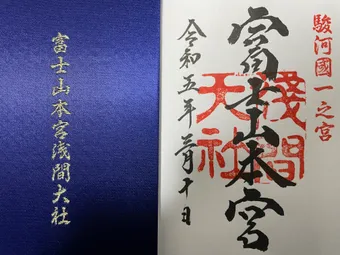 富士山本宮浅間大社
駿河國一之宮
富士山本宮
淺間
大社
令和五年三月十日